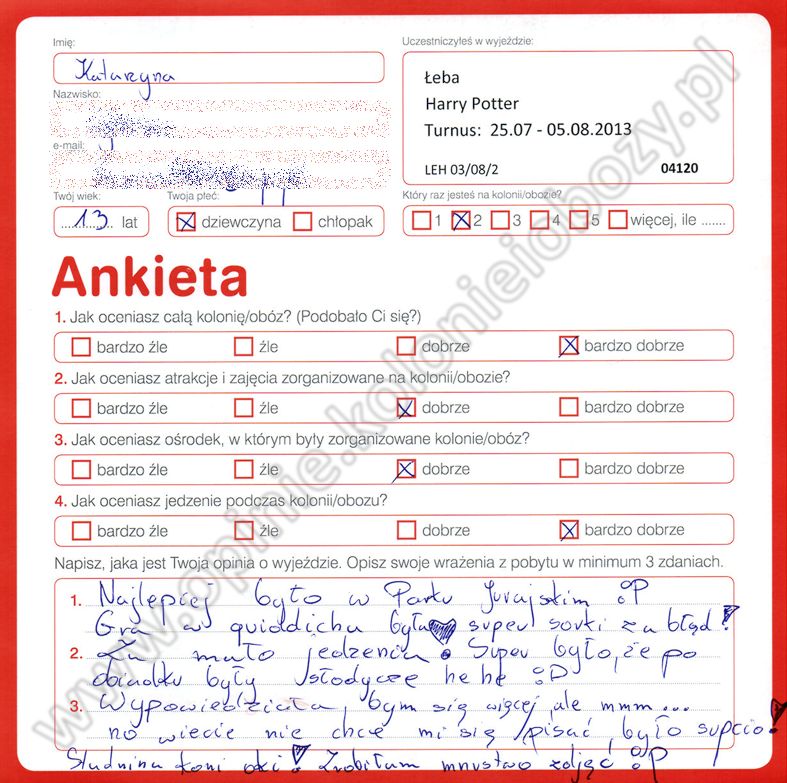 Imię:
Uczestniczyłeś w wyjeździe:
Katarzyna
Łeba
Harry Potter
Turnus: 25.07 - 05.08.2013
LEH 03/08/2 04120
Nazwisko:
e-mail:
Twój wiek:
Twoja płeć:
Który raz jesteś na kolonii/obozie?
13 lat
dziewczyna chłopak
1 2 3 4 5 więcej, ile .......
Ankieta
1. Jak oceniasz całą kolonię/obóz? (Podobało Ci się?)
bardzo źle źle dobrze bardzo dobrze
2. Jak oceniasz atrakcje i zajęcia zorganizowane na kolonii/obozie?
bardzo źle źle dobrze bardzo dobrze
3. Jak oceniasz ośrodek, w którym były zorganizowane kolonie/obóz?
bardzo źle źle dobrze bardzo dobrze
4. Jak oceniasz jedzenie podczas kolonii/obozu?
bardzo źle źle dobrze bardzo dobrze
Napisz, jaka jest Twoja opinia o wyjeździe. Opisz swoje wrażenia z pobytu w minimum 3 zdaniach.
1. Najlepiej było w Parku Jurajskim :P
Gra w quiddicha była super sorki za błąd!
2. Za mało jedzenia. Super było, że po
obiadku były słodycze hehe :D
3. Wypowiedziała, bym się więcej ale mmm...
no wiecie nie chce mi się pisać, było supcio!
Słudnina koni oki! Zrobiłam mnustwo zdjęć :P
www.opinie.kolonieiobozy.pl